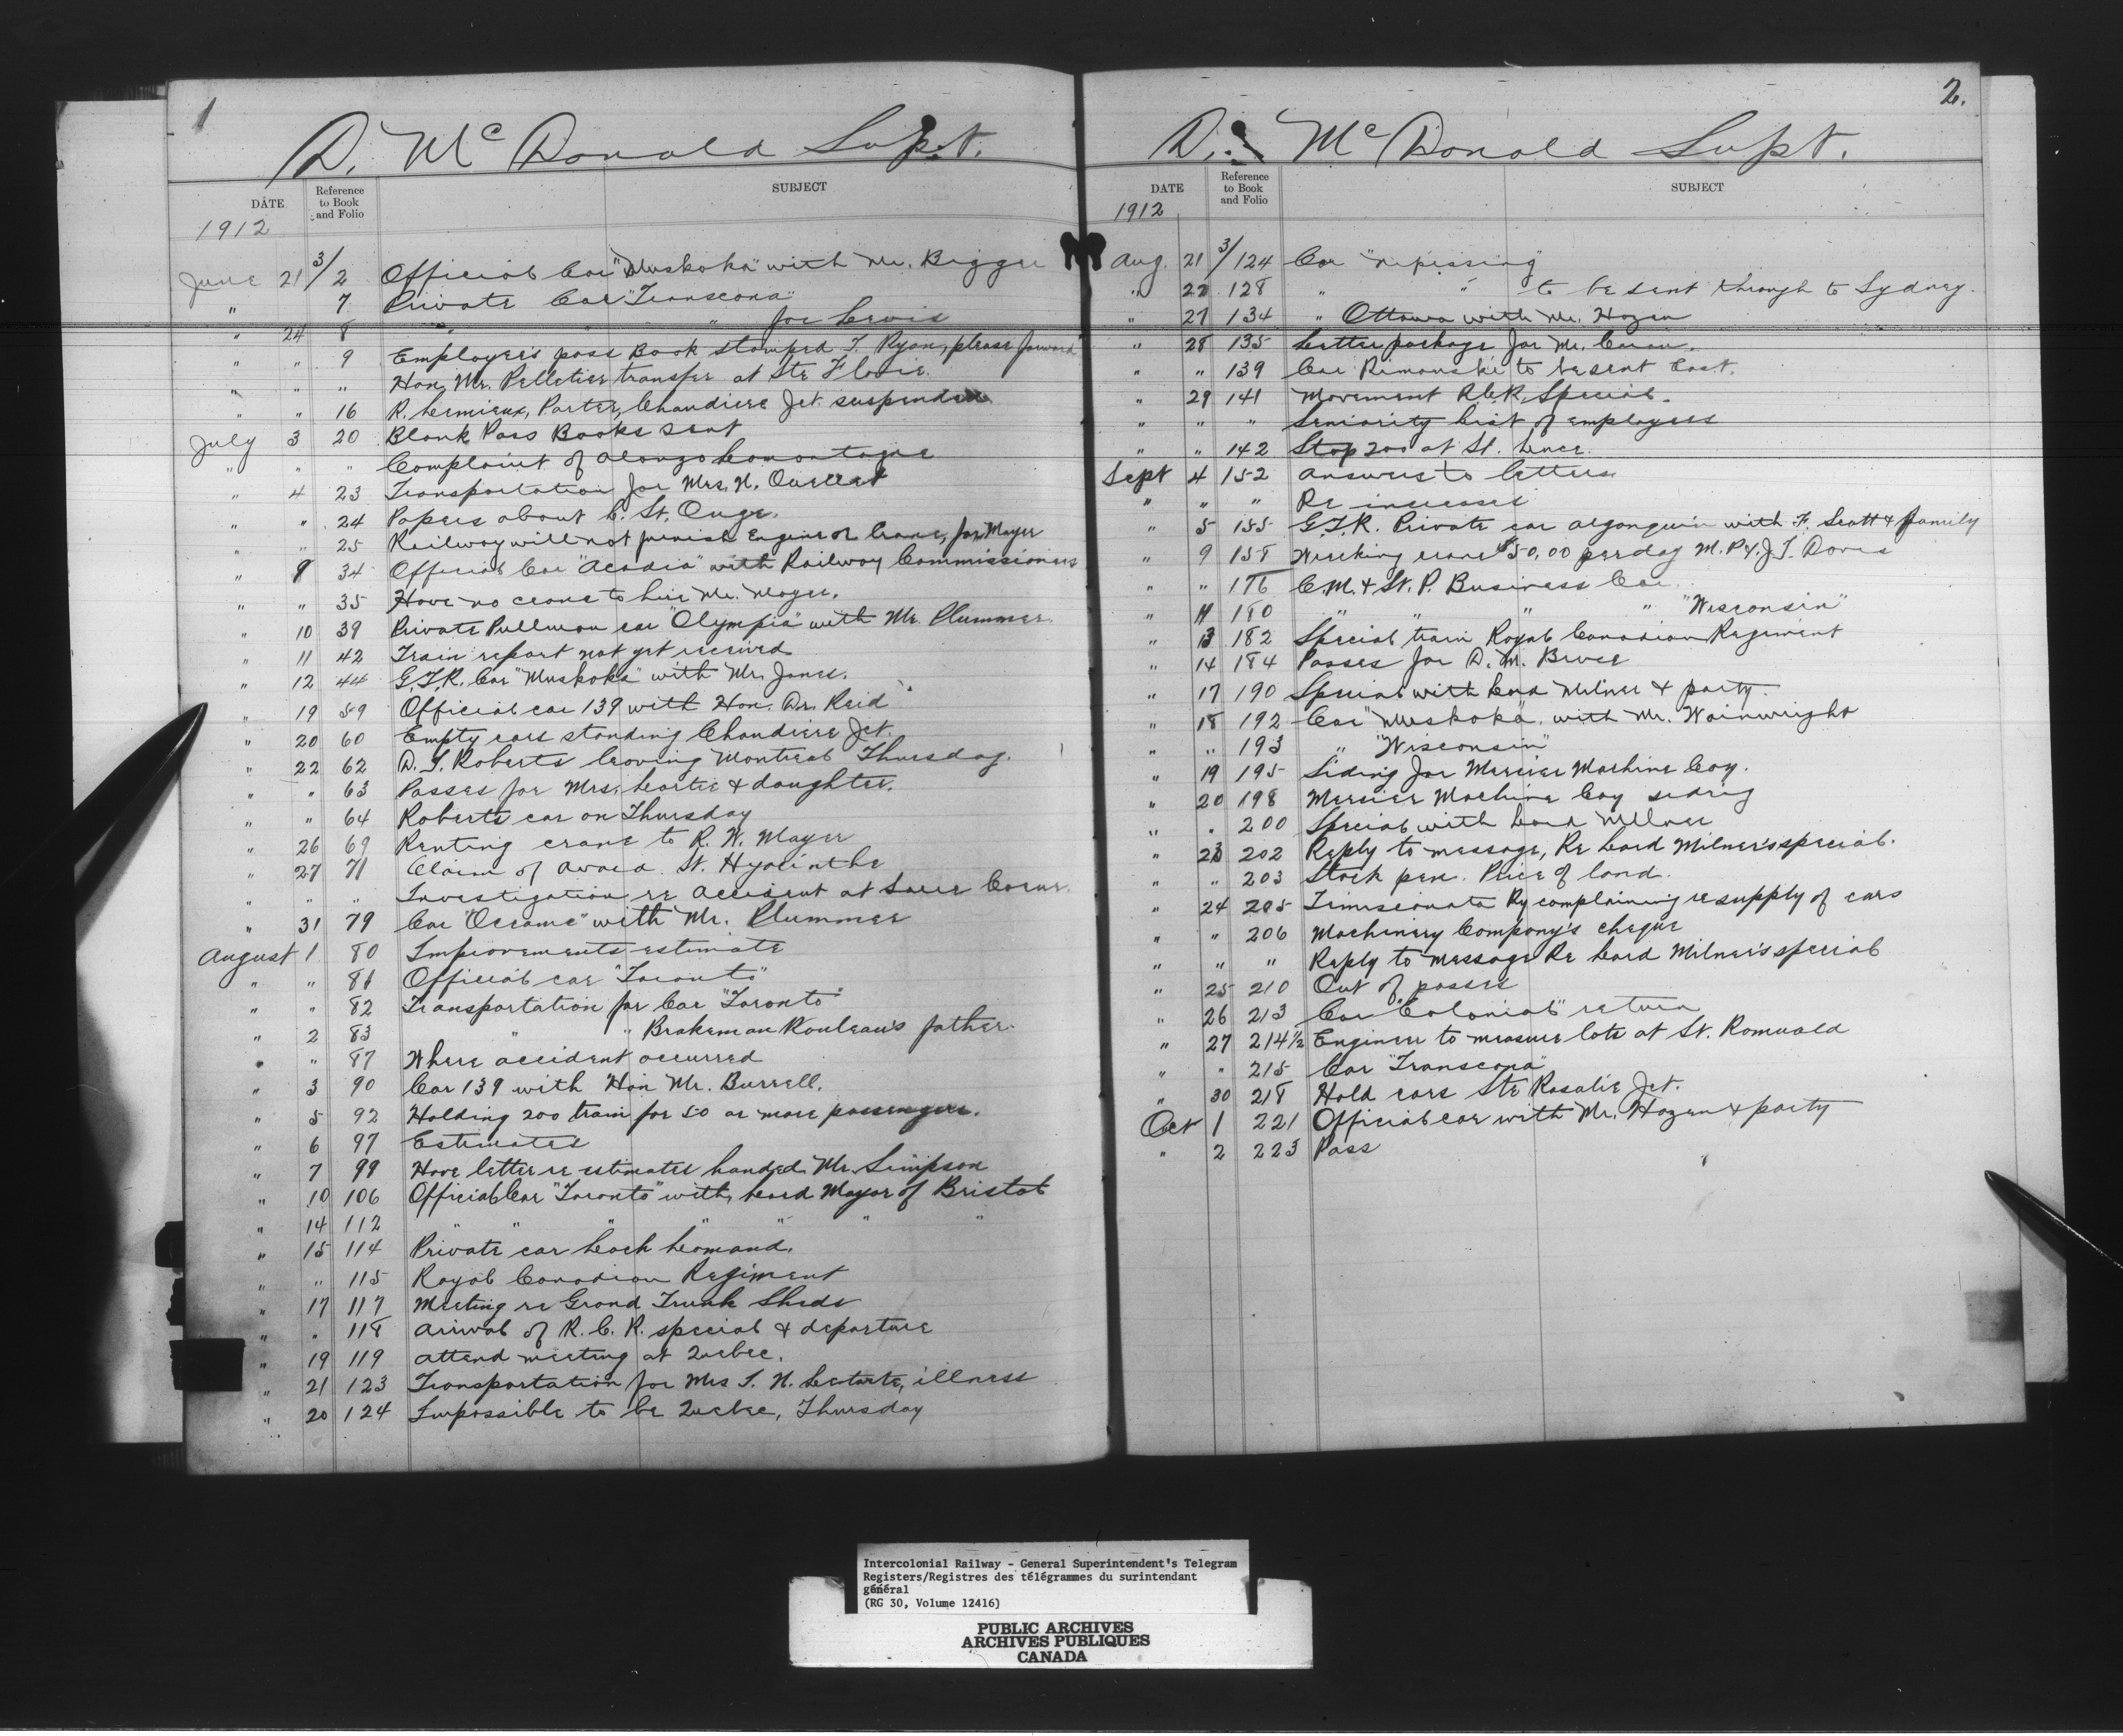 1
D. McDonald Supt.
DATE
Reference
to Book
and Folio
SUBJECT
1912
June 21 3/2 Official Car "Muskoka" with Mr. Bigger
" 7 Private Car "Transcona"
" 24 8 " " " for Lewis
" " 9 Employee's pass Book stamped T. Ryan, please forward
" " " Hon. Mr. Pelletier transfer at Ste Flavie.
" " 16 R. Lemieux, Porter, Chaudiere Jct. suspended
July 3 20 Blank Pass Books sent
" " " Complaint of Alonzo Lamontagne
" 4 23 Transportation for Mrs. N. Ouellet
" " 24 Papers about C. St. Onge.
" " 25 Railway will not furnish Engine or Crane, for Mayer
" 9 34 Official Car "Acadia" with Railway Commissioners
" " 35 Have no crane to hire Mr. Mayer.
" 10 39 Private Pullman car "Olympia" with Mr. Plummer.
" 11 42 Train report not yet received
" 12 44 G.T.R. Car "Muskoka" with Mr. Jones.
" 19 59 Official car 139 with Hon. Dr. Reid
" 20 60 Empty cars standing Chaudiere Jct.
" 22 62 D. T. Roberts leaving Montreal Thursday.
" " 63 Passes for Mrs. & daughter.
" " 64 Roberts car on Thursday
" 26 69 Renting crane to R. W. Mayer
" 27 71 Claim of St. Hyacinthe
" " " Investigation re accident at
" 31 79 Car "Oceanic" with Mr. Plummer
August 1 80 Improvements estimate
" " 81 Official car "Toronto"
" " 82 Transportation for Car "Toronto"
" 2 83 " " Brakeman Rouleau's father.
" " 87 Where accident occurred
" 3 90 Car 139 with Hon Mr. Burrell.
" 5 92 Holding 200 train for 50 or more passengers.
" 6 97 Estimates
" 7 98 Have letter re estimates handed Mr. Simpson
" 10 106 Official Car "Toronto" with Lord Mayor of Bristol
" 14 112 " " " " " " "
" 15 114 Private car Loch Lomand.
" " 115 Royal Canadian Regiment
" 17 117 Meeting re Grand Trunk Sheds
" " 118 Arrival of R. C. R. special & departure
" 19 119 Attend meeting at Quebec.
" 21 123 Transportation for Mrs T. N. illness
" 20 124 Impossible to be Quebec, Thursday
2.
D. McDonald Supt.
DATE
Reference
to Book
and Folio
SUBJECT
1912
Aug. 21 3/124 Car "Nipissing"
" 22 128 " " to be sent through to Sydney.
" 27 134 " Ottawa with Mr. Hazen
" 28 135 Letter package for Mr. Caron.
" " 139 Car Rimouski to be sent East.
" 29 141 Movement R.C.R. Special.
" " " Seniority List of employees
" " 142 Stop 200 at St.
Sept 4 152 Answers to letters
" " " Re increases
" 5 155 G.T.R. Private car Algonquin with F. Scott & family
" 9 158 Wrecking crane $50.00 per day M.P. & J.T. Davis
" " 176 C.M. & St. P. Business Car
" 11 180 " " " " "Wisconsin"
" 13 182 Special train Royal Canadian Regiment
" 14 184 Passes for D. M. Bruce
" 17 190 Special with Lord Milner & party
" 18 192 Car "Muskoka" with Mr. Wainwright
" " 193 " "Wisconsin"
" 19 195 Siding for Mercier Machine Coy.
" 20 198 Mercier Machine Coy siding
" " 200 Special with Lord Milner
" 23 202 Reply to message, Re Lord Milner's special.
" " 203 Stock pen. Price of land.
" 24 205 Temiscouata Ry complaining re supply of cars
" " 206 Machinery Company's cheque
" " " Reply to message Re Lord Milner's special
" 25 210 Out of passes
" 26 213 Car "Colonial" return
" 27 214½ Engineer to measure lots at St. Romuald
" " 215 Car "Transcona"
" 30 218 Hold cars Ste Rosalie Jct.
Oct 1 221 Official car with Mr. Hazen & party
" 2 223 Pass
Intercolonial Railway - General Superintendent's Telegram
Registers/Registres des télégrammes du surintendant
général
(RG 30, Volume 12416)
PUBLIC ARCHIVES
ARCHIVES PUBLIQUES
CANADA